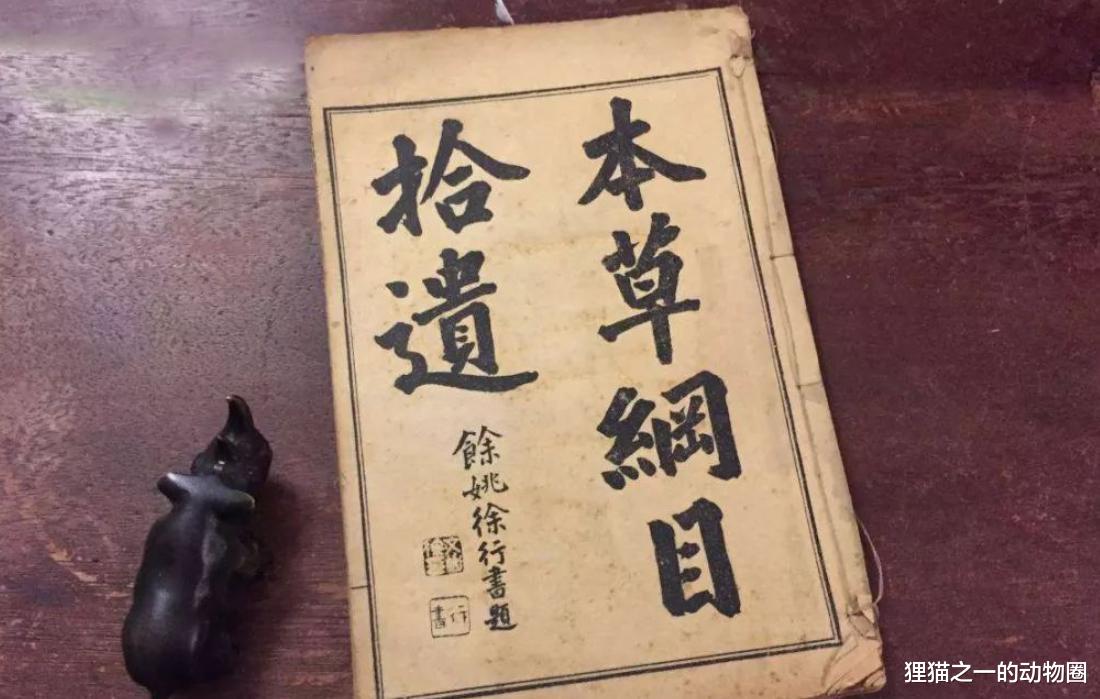 本草綱目
拾遺
餘姚徐行書題
行書
狸猫之一的动物圈